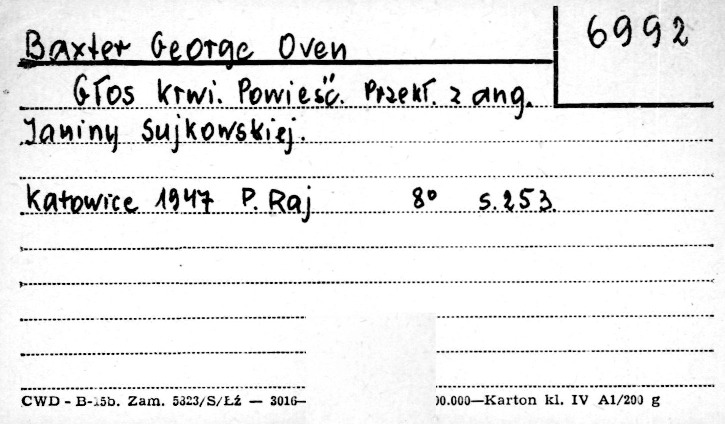 Baxter George Oven
6992
Głos krwi. Powieść. Przekł. z ang.
Janiny Sujkowskiej.
Katowice 1947 P. Raj 8° s. 253.
CWD - B-15b. Zam. 5323/S/Łź — 3016— 00.000—Karton kl. IV A1/200 g